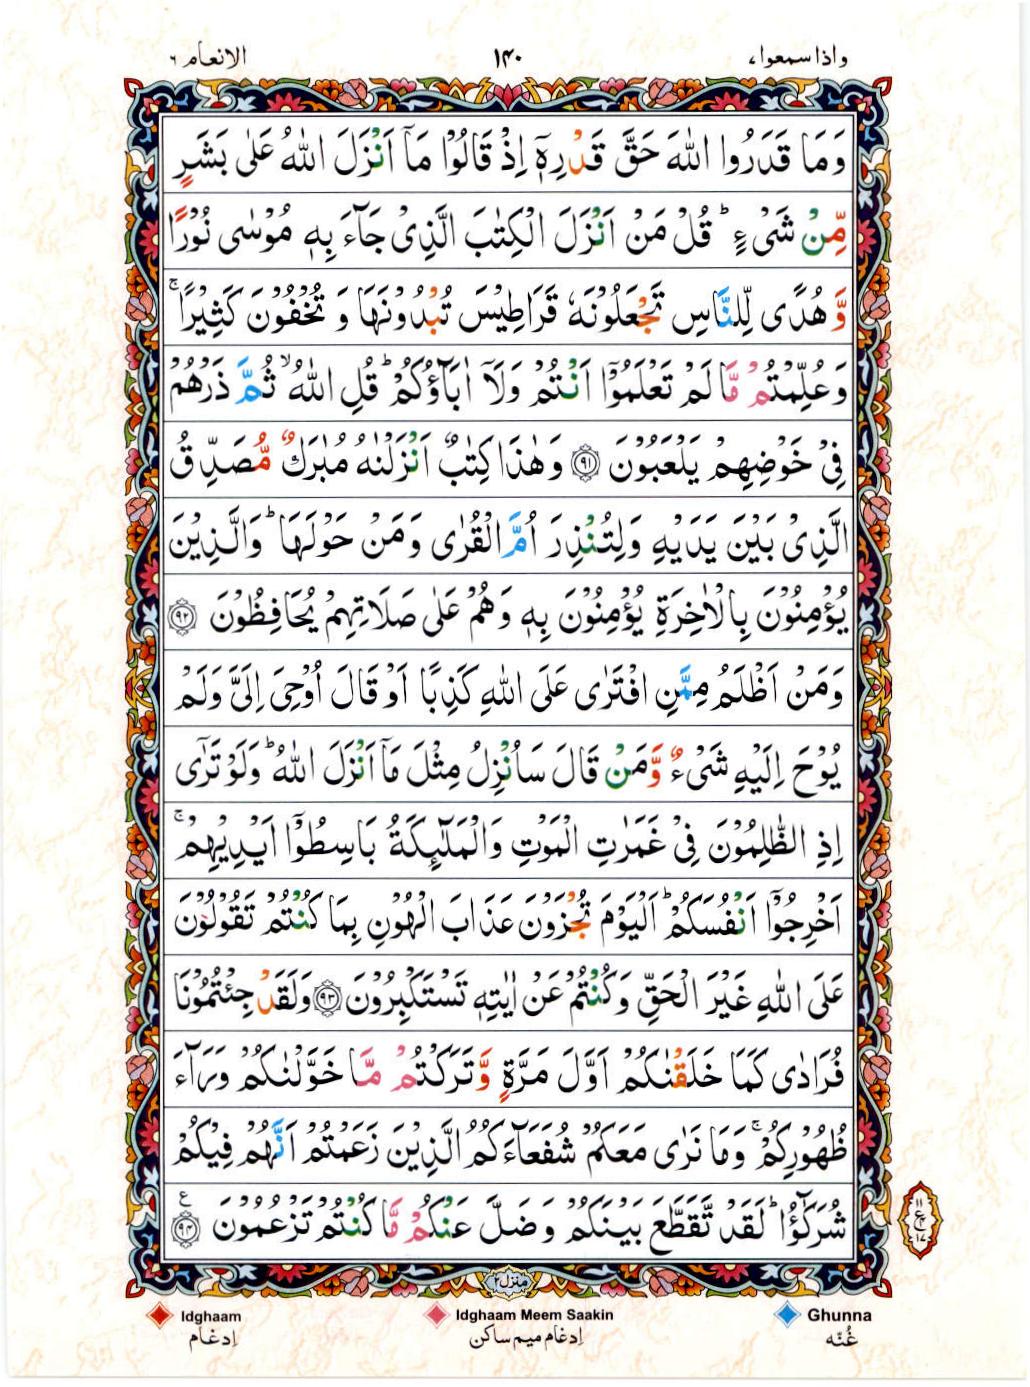 الانعام ۶ ۱۴۰ واذا سمعوا ۷
وَمَا قَدَرُوا اللّٰهَ حَقَّ قَدْرِهٖٓ اِذْ قَالُوْا مَآ اَنْزَلَ اللّٰهُ عَلٰى بَشَرٍ
مِّنْ شَىْءٍ ؕ قُلْ مَنْ اَنْزَلَ الْكِتٰبَ الَّذِىْ جَآءَ بِهٖ مُوْسٰى نُوْرًا
وَّ هُدًى لِّلنَّاسِ تَجْعَلُوْنَهٗ قَرَاطِيْسَ تُبْدُوْنَهَا وَ تُخْفُوْنَ كَثِيْرًا ۚ
وَعُلِّمْتُمْ مَّا لَمْ تَعْلَمُوْٓا اَنْتُمْ وَلَآ اٰبَآؤُكُمْ ؕ قُلِ اللّٰهُ ۙ ثُمَّ ذَرْهُمْ
فِىْ خَوْضِهِمْ يَلْعَبُوْنَ ﴿۹۱﴾ وَهٰذَا كِتٰبٌ اَنْزَلْنٰهُ مُبٰرَكٌ مُّصَدِّقُ
الَّذِىْ بَيْنَ يَدَيْهِ وَلِتُنْذِرَ اُمَّ الْقُرٰى وَمَنْ حَوْلَهَا ؕ وَالَّذِيْنَ
يُؤْمِنُوْنَ بِالْاٰخِرَةِ يُؤْمِنُوْنَ بِهٖ وَهُمْ عَلٰى صَلَاتِهِمْ يُحَافِظُوْنَ ﴿۹۲﴾
وَمَنْ اَظْلَمُ مِمَّنِ افْتَرٰى عَلَى اللّٰهِ كَذِبًا اَوْ قَالَ اُوْحِىَ اِلَىَّ وَلَمْ
يُوْحَ اِلَيْهِ شَىْءٌ وَّمَنْ قَالَ سَاُنْزِلُ مِثْلَ مَآ اَنْزَلَ اللّٰهُ ؕ وَلَوْ تَرٰٓى
اِذِ الظّٰلِمُوْنَ فِىْ غَمَرٰتِ الْمَوْتِ وَالْمَلٰٓئِكَةُ بَاسِطُوْٓا اَيْدِيْهِمْ ۚ
اَخْرِجُوْٓا اَنْفُسَكُمْ ؕ اَلْيَوْمَ تُجْزَوْنَ عَذَابَ الْهُوْنِ بِمَا كُنْتُمْ تَقُوْلُوْنَ
عَلَى اللّٰهِ غَيْرَ الْحَقِّ وَكُنْتُمْ عَنْ اٰيٰتِهٖ تَسْتَكْبِرُوْنَ ﴿۹۳﴾ وَلَقَدْ جِئْتُمُوْنَا
فُرَادٰى كَمَا خَلَقْنٰكُمْ اَوَّلَ مَرَّةٍ وَّتَرَكْتُمْ مَّا خَوَّلْنٰكُمْ وَرَآءَ
ظُهُوْرِكُمْ ۚ وَمَا نَرٰى مَعَكُمْ شُفَعَآءَكُمُ الَّذِيْنَ زَعَمْتُمْ اَنَّهُمْ فِيْكُمْ
شُرَكٰٓؤُا ؕ لَقَدْ تَّقَطَّعَ بَيْنَكُمْ وَضَلَّ عَنْكُمْ مَّا كُنْتُمْ تَزْعُمُوْنَ ﴿۹۴﴾ ع
۱۱
ع
۱۷
منزل ۲
Idghaam Idghaam Meem Saakin Ghunna
اِدغام اِدغام میم ساکن غُنّه